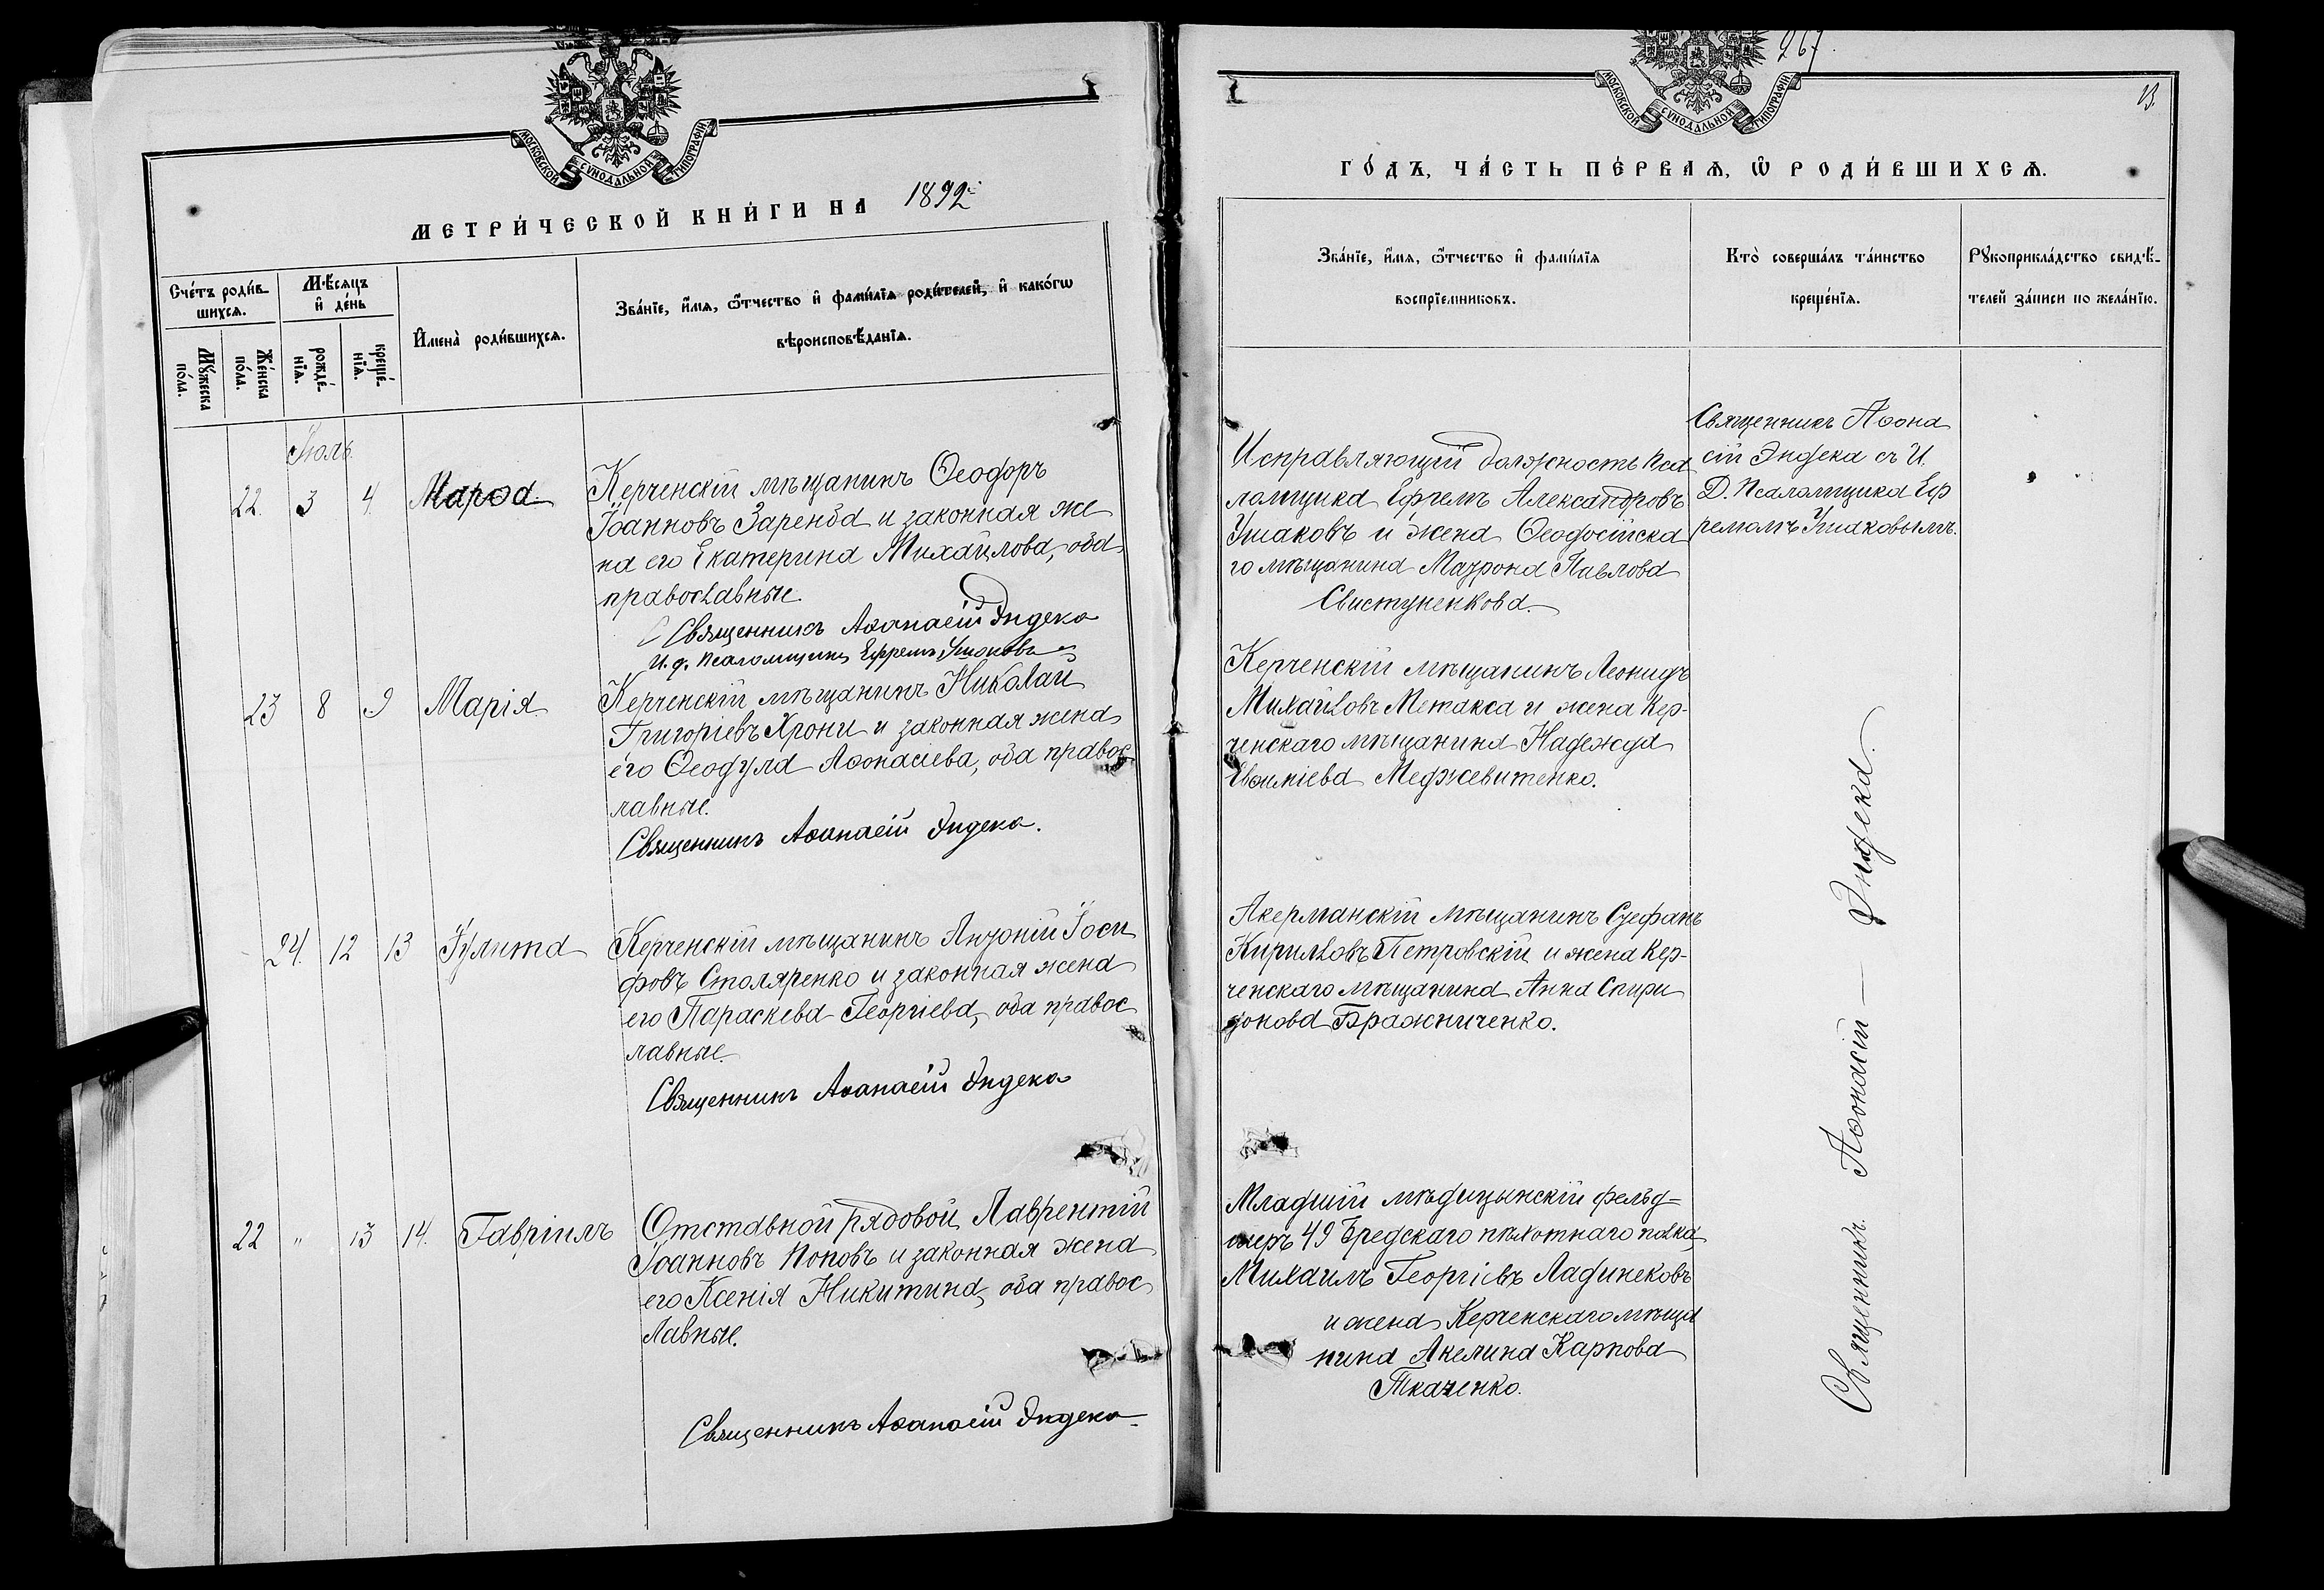 МОСКОВСКОЙ СѴНОДАЛЬНОЙ ТИПОГРАФІИ
МЕТРИ́ЧЕСКОЙ КНИ́ГИ НА 1892й
Сче́тъ роди́в-
шихсѧ.
Мѣ́сяцъ
и҆ де́нь
И҆мена̀ роди́вшихсѧ.
Зва́нїе, и҆́мѧ, ѻ҆́тчество и҆ фами́лїѧ роди́телей, и҆ како́гѡ
вѣроисповѣ́данїѧ.
Мꙋ́жеска
по́ла.
Же́нска
по́ла.
рожде́-
нїѧ.
креще́-
нїѧ.
Іюль.
22. 3 4. Марѳа.
Керченскій мѣщанинъ Ѳеодоръ
Іоанновъ Заренба и законная же
на его Екатерина Михайлова, оба
православные.
Священникъ Аѳанасій Эндека
И. д. псаломщика Ефремъ Ушаковъ
23 8 9 Марія.
Керченскій мѣщанинъ Николай
Григоріевъ Хрони и законная жена
его Ѳеодула Аѳонасіева, оба правос
лавные.
Священникъ Аѳанасій Эндека.
24. 12 13 Іулита
Керченскій мѣщанинъ Антоній Іоси
фовъ Столяренко и законная жена
его Параскева Георгіева, оба правос
лавные.
Священникъ Аѳанасій Эндека
22 " 13 14. Гавріилъ
Отставной рядовой Лаврентій
Іоанновъ Поповъ и законная жена
его Ксенія Никитина, оба правос
лавные.
Священникъ Аѳанасій Эндека
267.
13.
МОСКОВСКОЙ СѴНОДАЛЬНОЙ ТИПОГРАФІИ
ГО́ДЪ, ЧА́СТЬ ПЕ́РВАѦ, Ѡ҆ РОДИ́ВШИХСѦ.
Зва́нїе, и҆́мѧ, ѻ҆́тчество и҆ фами́лїѧ
воспрїемниковъ.
Кто̀ соверша́лъ та́инство
креще́нїѧ.
Рꙋкоприкла́дство свидѣ́-
телей за́писи по жела́нїю.
Исправляющій должность пса
ломщика Ефремъ Александровъ
Ушаковъ и жена Ѳеодосійска
го мѣщанина Матрона Павлова
Свистуненкова.
Священникъ Аѳона
сій Эндека съ И.
Д. Псаломщика Еф
ремомъ Ушаковымъ.
Керченскій мѣщанинъ Леонидъ
Михайловъ Метакса и жена Кер-
ченскаго мѣщанина Надежда
Евѳиміева Меджевитенко.
Акерманскій мѣщанинъ Стефанъ
Кирилловъ Петровскій и жена Кер-
ченскаго мѣщанина Анна Спири
донова Бражниченко.
Младшій мѣдицынскій фельд-
шеръ 49 Бредскаго пѣхотнаго полка
Михаилъ Георгіевъ Ладинековъ
и жена Керченскаго мѣща
нина Акелина Карпова
Ткаченко.
Священникъ Аѳонасій — Эндека.